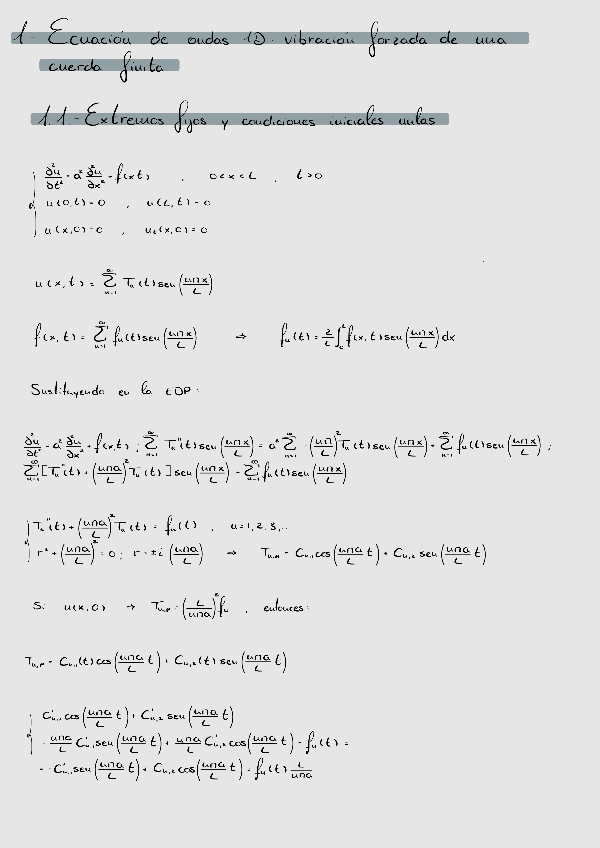 1- Ecuación de ondas 1D. vibración forzada de una
cuerda finita
1.1- Extremos fijos y condiciones iniciales nulas
∂²u/∂t² = a² ∂²u/∂x² + f(x,t) , 0<x<L , t>0
u(0,t)=0 , u(L,t)=0
u(x,0)=0 , uₜ(x,0)=0
u(x,t) = ∑_{n=1}^{∞} Tₙ(t) sen(nπx/L)
f(x,t) = ∑_{n=1}^{∞} fₙ(t) sen(nπx/L) ⇒ fₙ(t) = 2/L ∫₀ᴸ f(x,t) sen(nπx/L) dx
Sustituyendo en la EDP:
∂²u/∂t² = a² ∂²u/∂x² + f(x,t) ; ∑_{n=1}^{∞} Tₙ''(t) sen(nπx/L) = a² ∑_{n=1}^{∞} -(nπ/L)² Tₙ(t) sen(nπx/L) + ∑_{n=1}^{∞} fₙ(t) sen(nπx/L) ;
∑_{n=1}^{∞} [Tₙ''(t) + (nπa/L)² Tₙ(t)] sen(nπx/L) = ∑_{n=1}^{∞} fₙ(t) sen(nπx/L)
Tₙ''(t) + (nπa/L)² Tₙ(t) = fₙ(t) , n=1,2,3,...
r² + (nπa/L)² = 0 ; r = ±i (nπa/L) ⇒ Tₙ,ₕ = Cₙ,₁ cos(nπa/L t) + Cₙ,₂ sen(nπa/L t)
Si u(x,0) → Tₙ,ₚ = (L/nπa)² fₙ , entonces:
Tₙ,ₚ = Cₙ,₁(t) cos(nπa/L t) + Cₙ,₂(t) sen(nπa/L t)
C'ₙ,₁ cos(nπa/L t) + C'ₙ,₂ sen(nπa/L t)
- nπa/L C'ₙ,₁ sen(nπa/L t) + nπa/L C'ₙ,₂ cos(nπa/L t) = fₙ(t) =
= -C'ₙ,₁ sen(nπa/L t) + Cₙ,₂ cos(nπa/L t) = fₙ(t) L/nπa